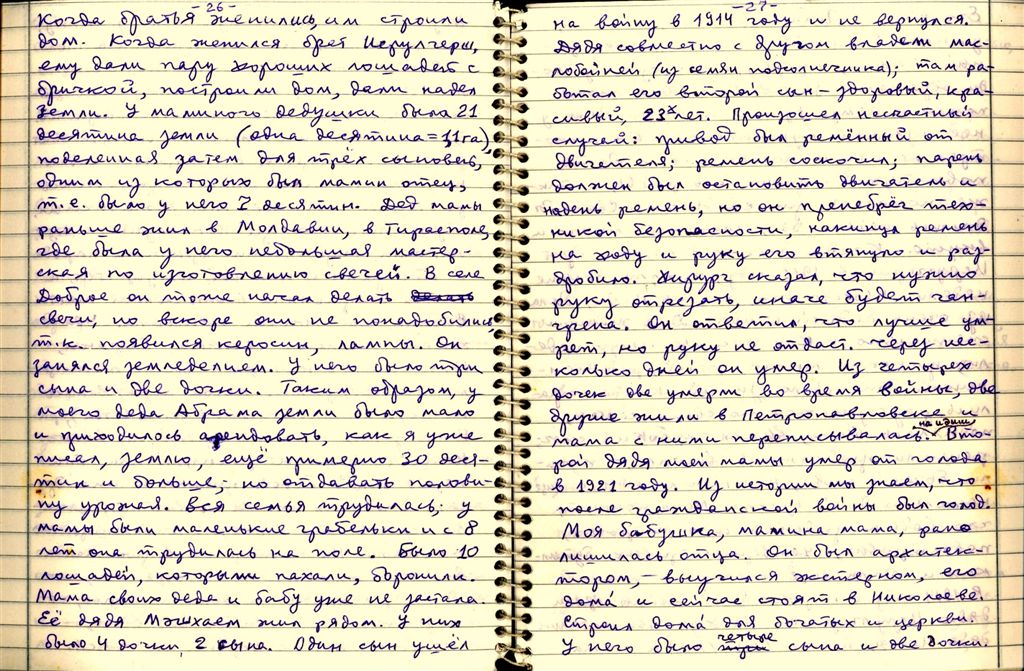 -26-
Когда братья женились, им строили
дом. Когда женился брат Иерулгерш,
ему дали пару хороших лошадей с
бричкой, построили дом, дали надел
земли. У маминого дедушки была 21
десятина земли (одна десятина=1,1га),
поделенная затем для трёх сыновей,
одним из которых был мамин отец,
т.е. было у него 7 десятин. Дед мамы
раньше жил в Молдавии, в Тирасполе,
где была у него небольшая мастер-
ская по изготовлению свечей. В селе
Доброе он тоже начал делать делать
свечи, но вскоре они не понадобились,
т.к. появился керосин, лампы. Он
занялся земледелием. У него было три
сына и две дочки. Таким образом, у
моего деда Абрама земли было мало
и приходилось арендовать, как я уже
писал, землю, ещё примерно 30 деся-
тин и больше, но отдавать полови-
ну урожая. Вся семья трудилась; у
мамы были маленькие грабельки и с 8
лет она трудилась на поле. Было 10
лошадей, которыми пахали, боронили.
Мама своих деда и бабу уже не застала.
Её дядя Мэшхаем жил рядом. У них
было 4 дочки, 2 сына. Один сын ушёл
-27-
на войну в 1914 году и не вернулся.
Дядя совместно с другом владели мас-
лобойней (из семян подсолнечника); там ра-
ботал его второй сын – здоровый, кра-
сивый, 23х лет. Произошел несчастный
случай: привод был ремённый от
двигателя; ремень соскочил; парень
должен был остановить двигатель и
надень ремень, но он пренебрёг тех-
никой безопасности, накинул ремень
на ходу и руку его втянуло и раз-
дробило. Хирург сказал, что нужно
руку отрезать, иначе будет ган-
грена. Он ответил, что лучше ум-
рет, но руку не отдаст. Через нес-
колько дней он умер. Из четырех
дочек две умерли во время войны, две
другие жили в Петропавловске и
мама с ними переписывалась на идиш. Вто-
рой дядя моей мамы умер от голода
в 1921 году. Из истории мы знаем, что
после гражданской войны был голод.
Моя бабушка, мамина мама, рано
лишилась отца. Он был архитек-
тором, – выучился экстерном, его
дома́ и сейчас стоят в Николаеве.
Строил дома́ для богатых и церкви.
У него было три четыре сына и две дочки.